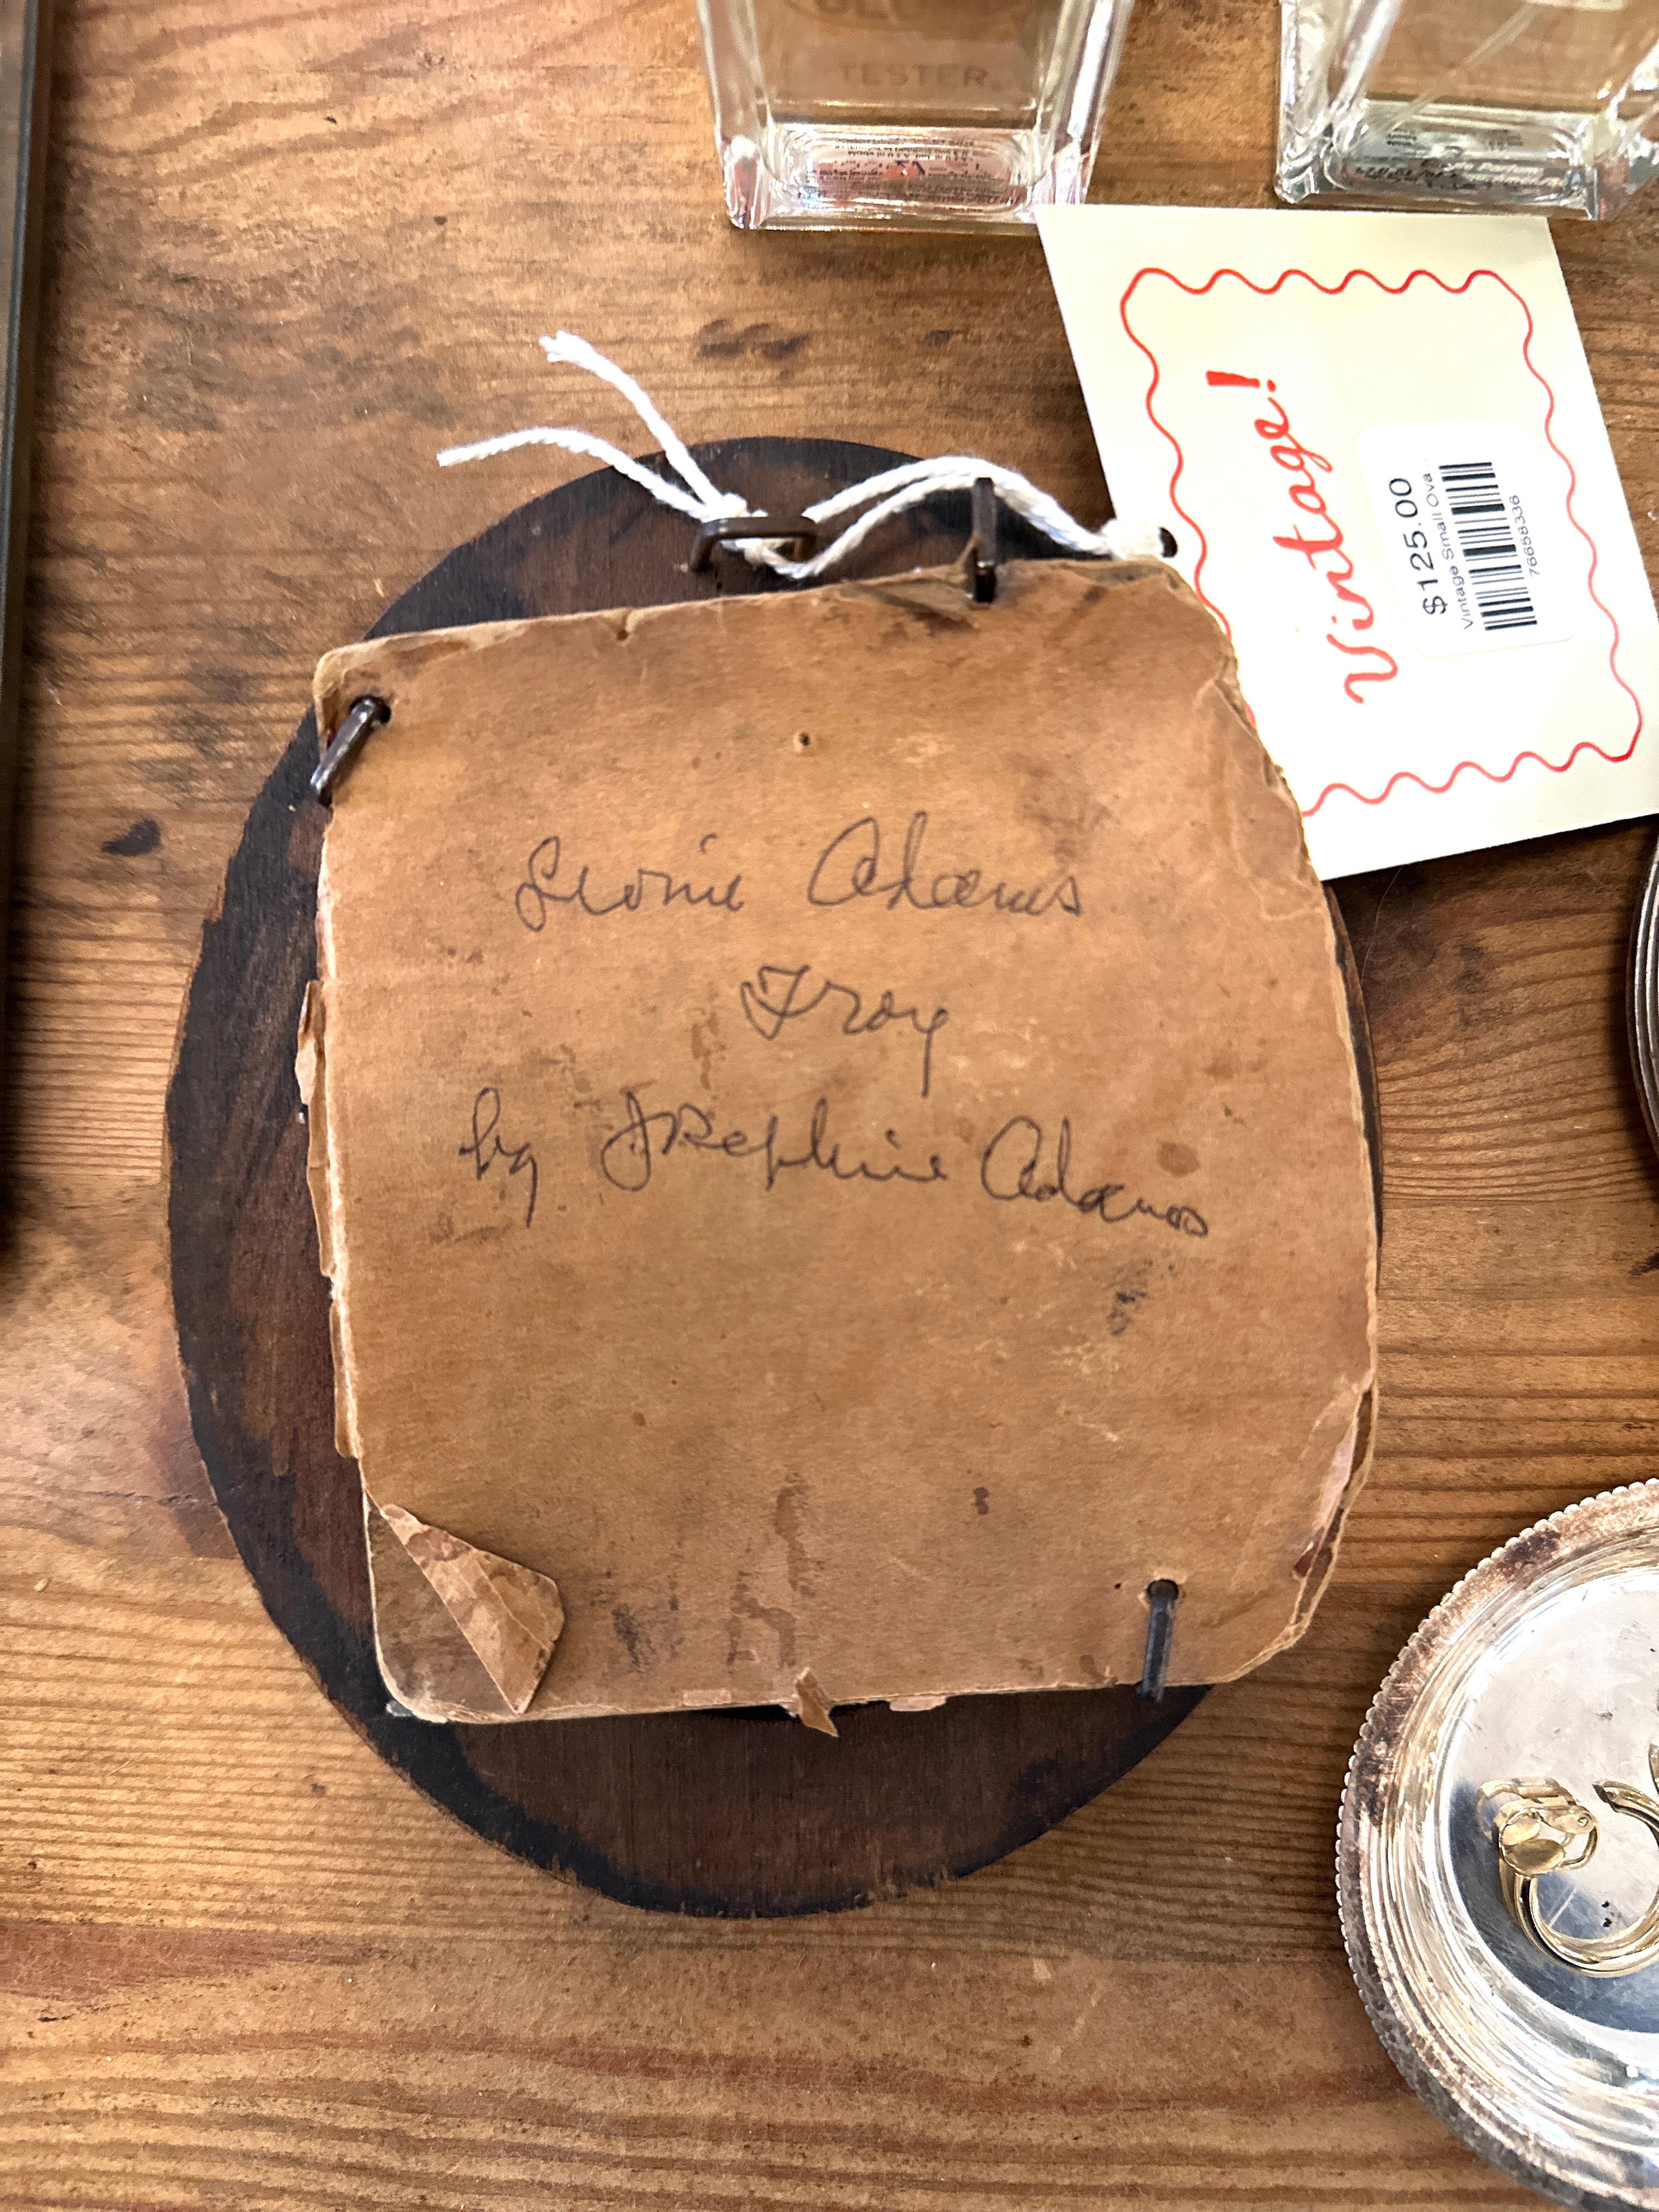 TESTER
Vintage!
$125.00
Vintage Small Ova
76658336
Leonie Adams
Troy
by Josephine Adams